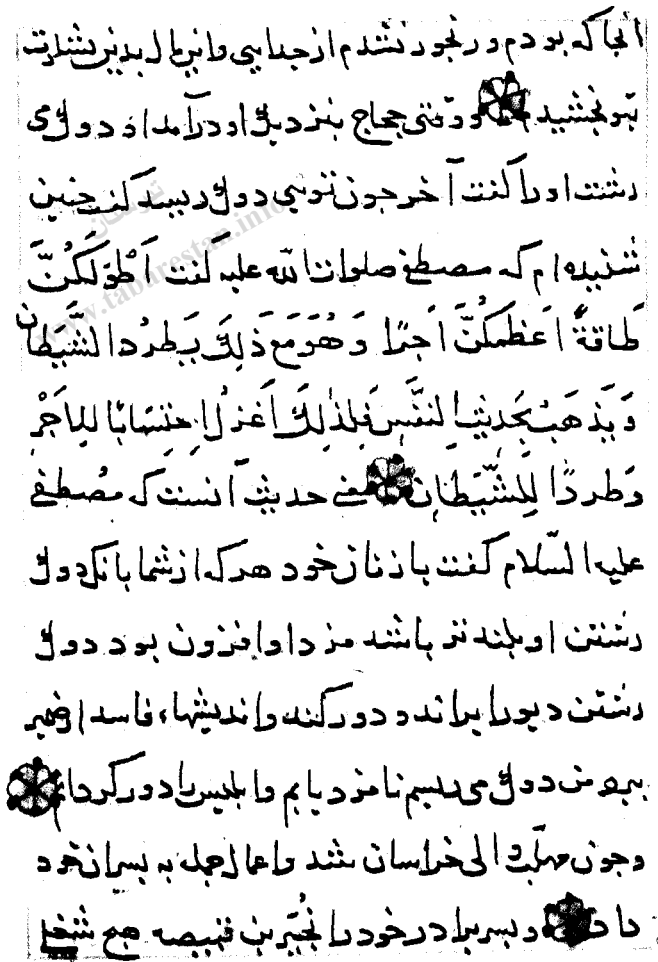 انجا که بودم ورنجور نشدم از جدایی واین مال بدین بشارت
بتو بخشیدم ووقتی حجاج بنزدیک او درآمد او دوک می
رشت اورا گفت آخر جون تویی دوک ریسد گفت جنین
شنیده ام که مصطفی صلوات الله علیه گفت اَطْوَلَکُنَّ
طاقةً اَعظَمَکُنَّ اَجرًا وَهُوَ مَعَ ذَلِکَ یَطرُدُ الشَّیطان
وَیَذهَبُ بحَدیث النَّفس فلذلک اَغزلُ احتسابًا للاَجرِ
وَطردًا لِلشَّیطان معنی حدیث آنست که مصطفی
علیه السّلام گفت با زنان خود هر که از شما بانک دوک
رشتن او بلندتر باشد مزد اوافزون بود دوک
رشتن دیورا براند و دور کند واندیشهاء فاسد از ضمیر
ببرد من دوک می ریسم تا مزد یابم وابلیس را دور کردانم
وجون مهلّب والی خراسان شد واعمال جمله به بسران خود
داد وبسر برادر خود را قبیصه هیج شغلی